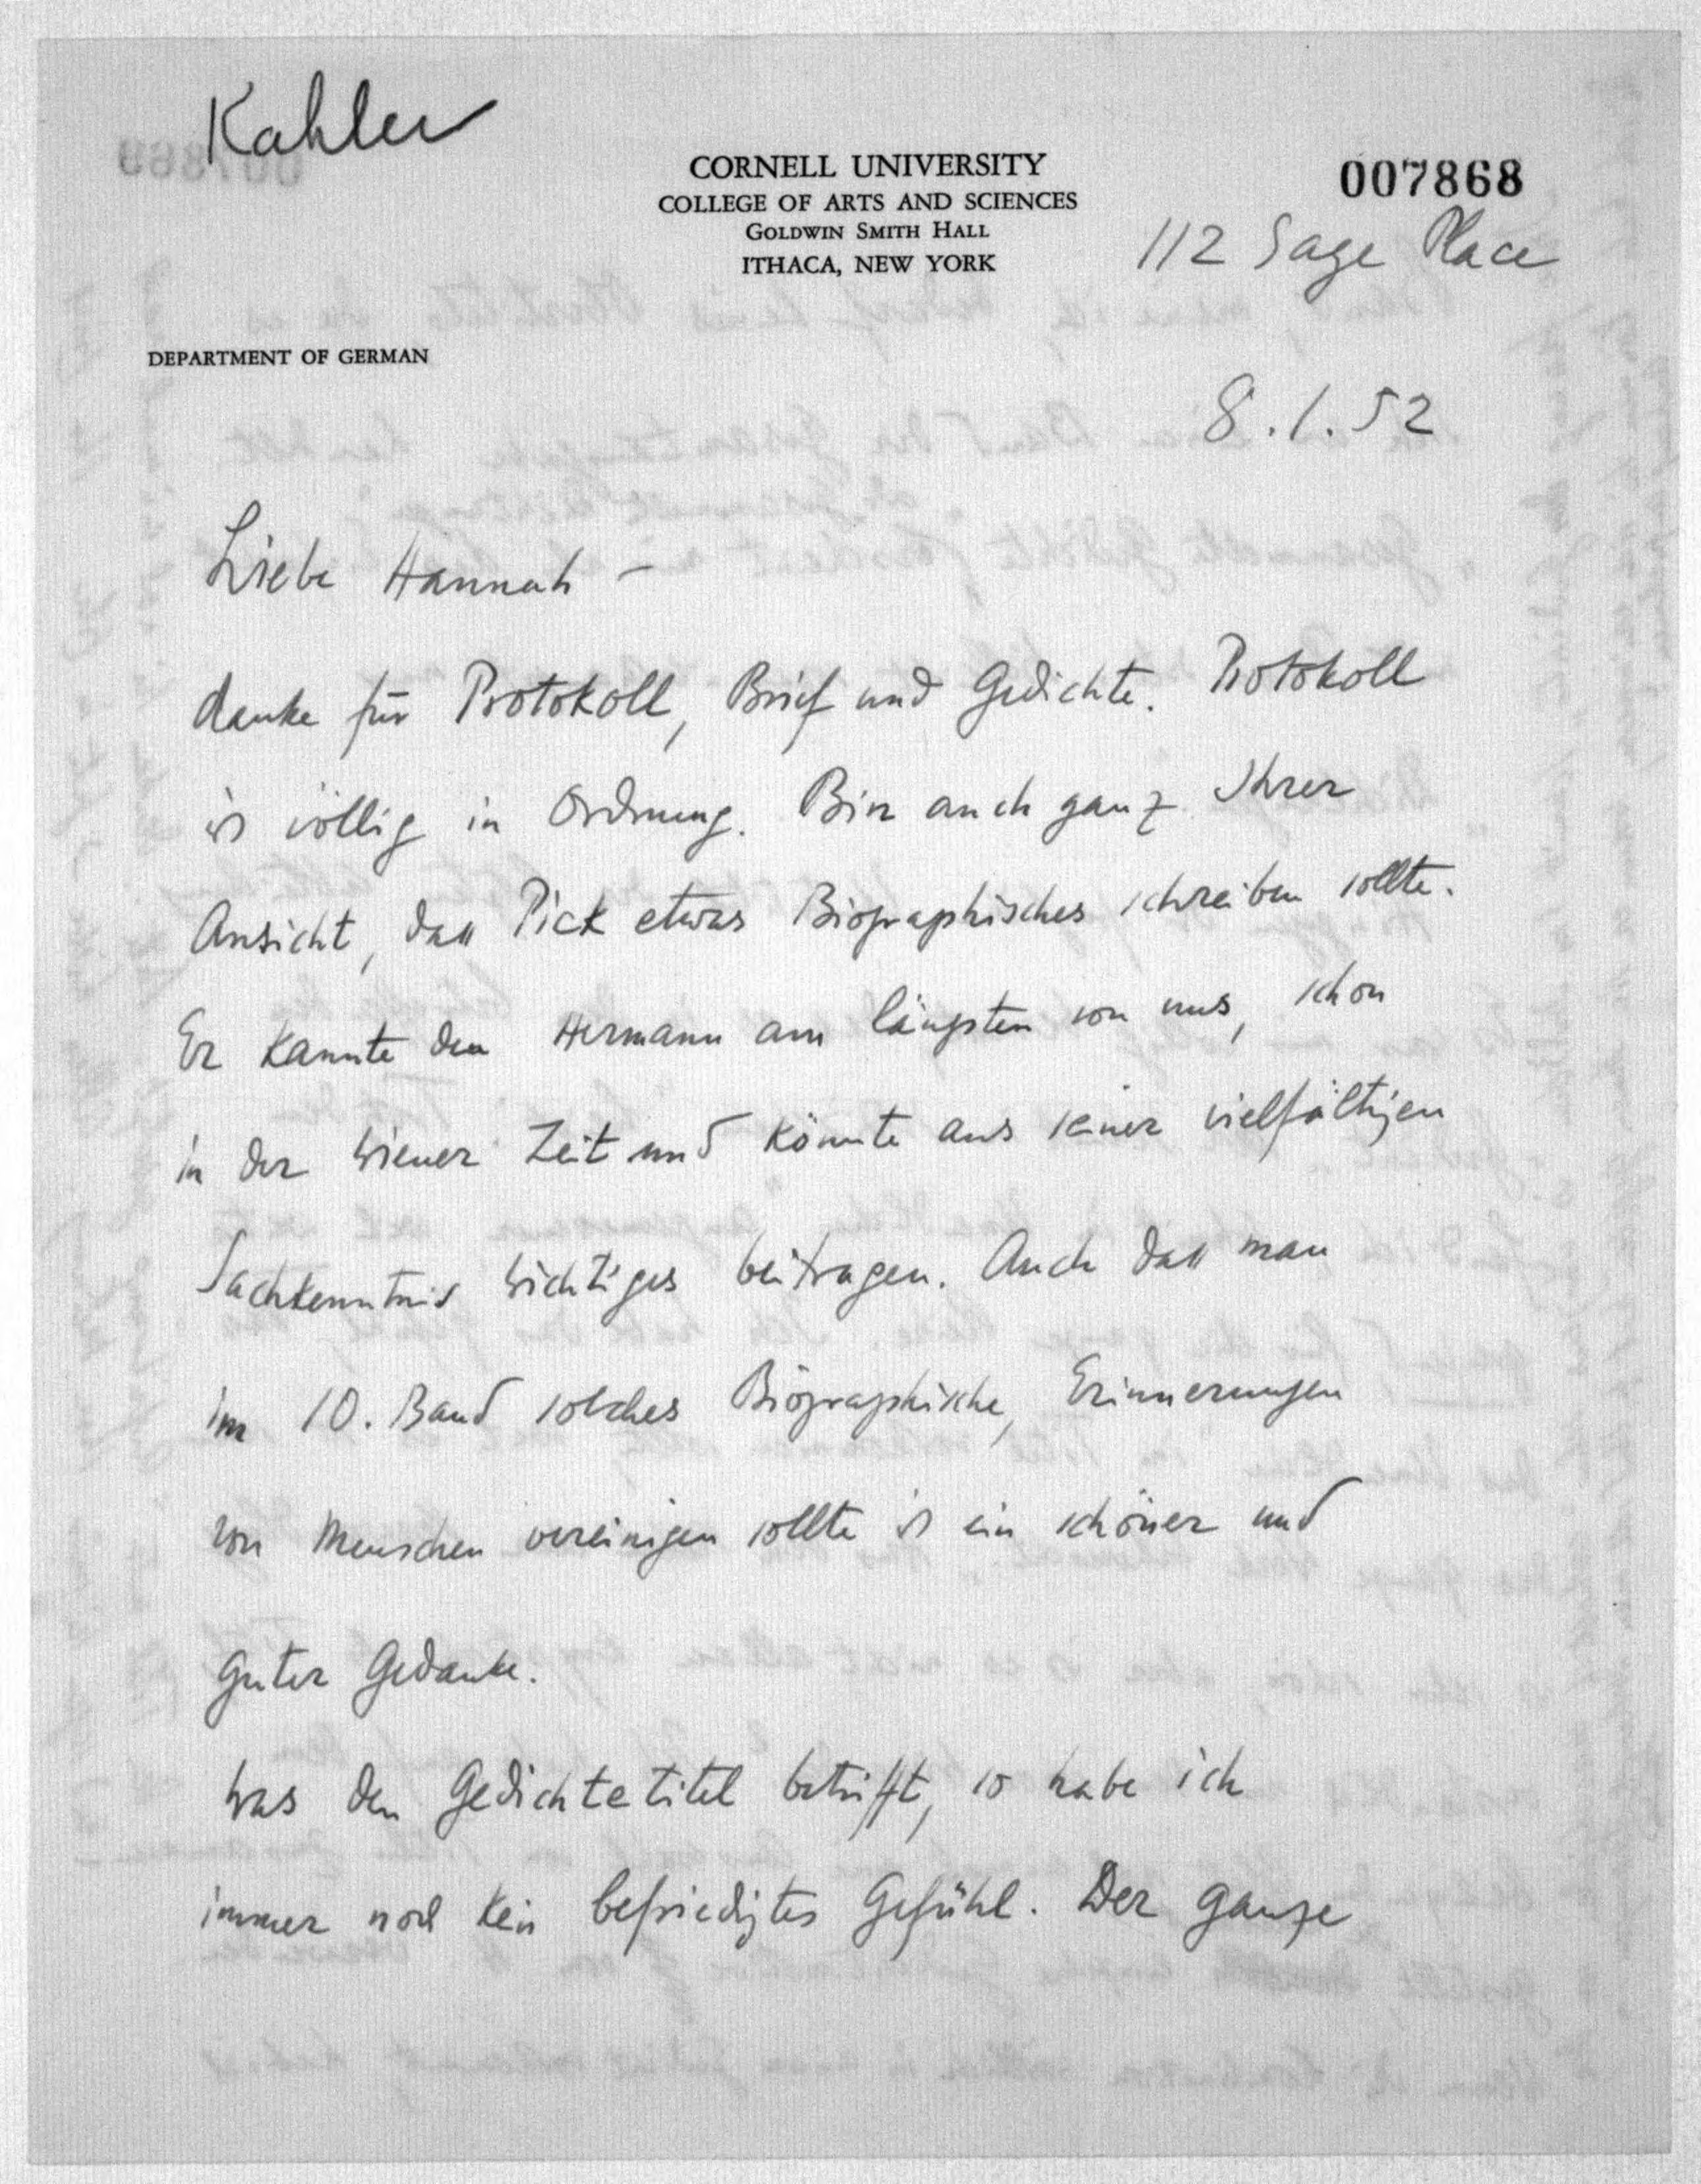 Kahler
CORNELL UNIVERSITY
COLLEGE OF ARTS AND SCIENCES
GOLDWIN SMITH HALL
ITHACA, NEW YORK
007868
112 Sage Place
DEPARTMENT OF GERMAN
8.1.52
Liebe Hannah –
danke für Protokoll, Brief und Gedichte. Protokoll
is völlig in Ordnung. Bin auch ganz Ihrer
Ansicht, dass Pick etwas Biographisches schreiben sollte.
Er kannte den Hermann am längsten von uns, schon
in der Wiener Zeit und könnte aus seiner vielfältigen
Sachkenntnis wichtiges beitragen. Auch dass man
im 10. Band solches Biographische, Erinnerungen
von Menschen vereinigen sollte is ein schöner und
guter Gedanke.
Was den Gedichtetitel betrifft, so habe ich
immer noch kein befriedigtes Gefühl. Der ganze